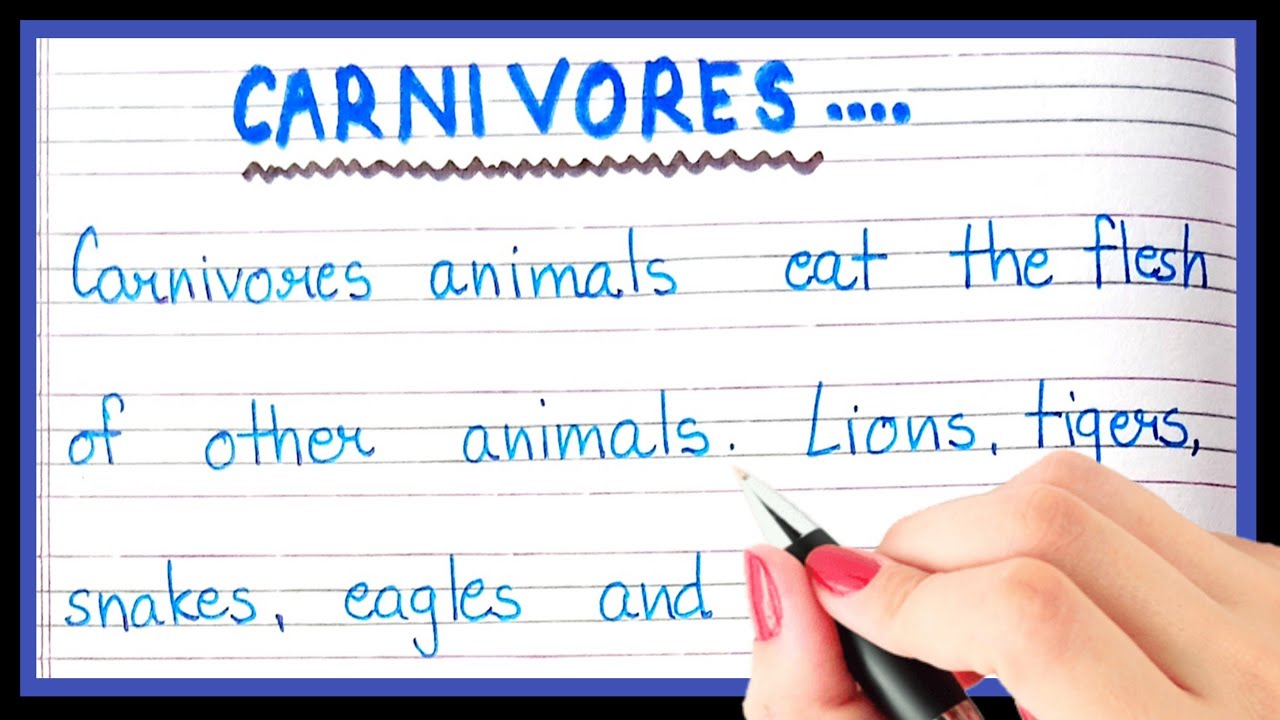 CARNIVORES ....
Carnivores animals eat the flesh
of other animals. Lions, tigers,
snakes, eagles and